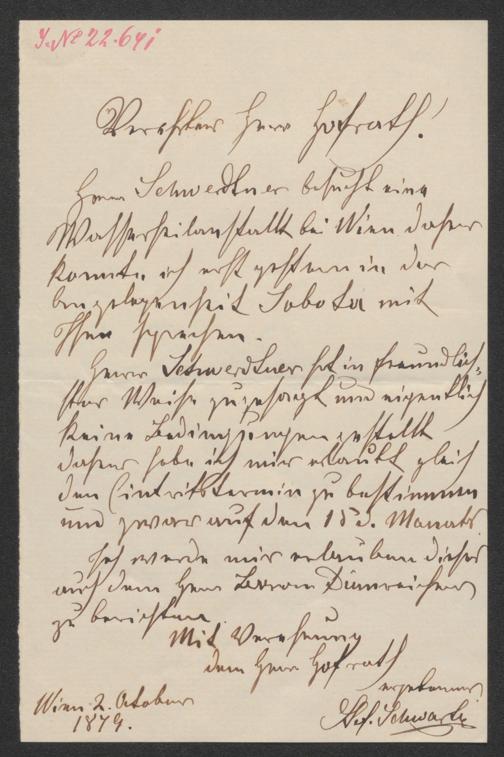 J. No 22.641
Verehrter Herr Hofrath!
Herr Schwerdtner besucht eine
Wasserheilanstallt bei Wien daher
konnte ich erst gestern in der
Angelegenheit Sobota mit
Ihm sprechen.
Herr Schwerdtner hat in freundlich-
ster Weise zugesagt und eigentlich
keine Bedingungen gestellt
daher habe ich mir erlaubt gleich
den Eintritstermin zu bestimmen
und zwar auf den 15 d. Monats
Ich werde mir erlauben dieses
auch dem Herrn Baron Dumreicher
zu berichten.
Mit Verehrung
dem Herrn Hofrath
ergebener
Schwartz
Wien 2. October
1879.